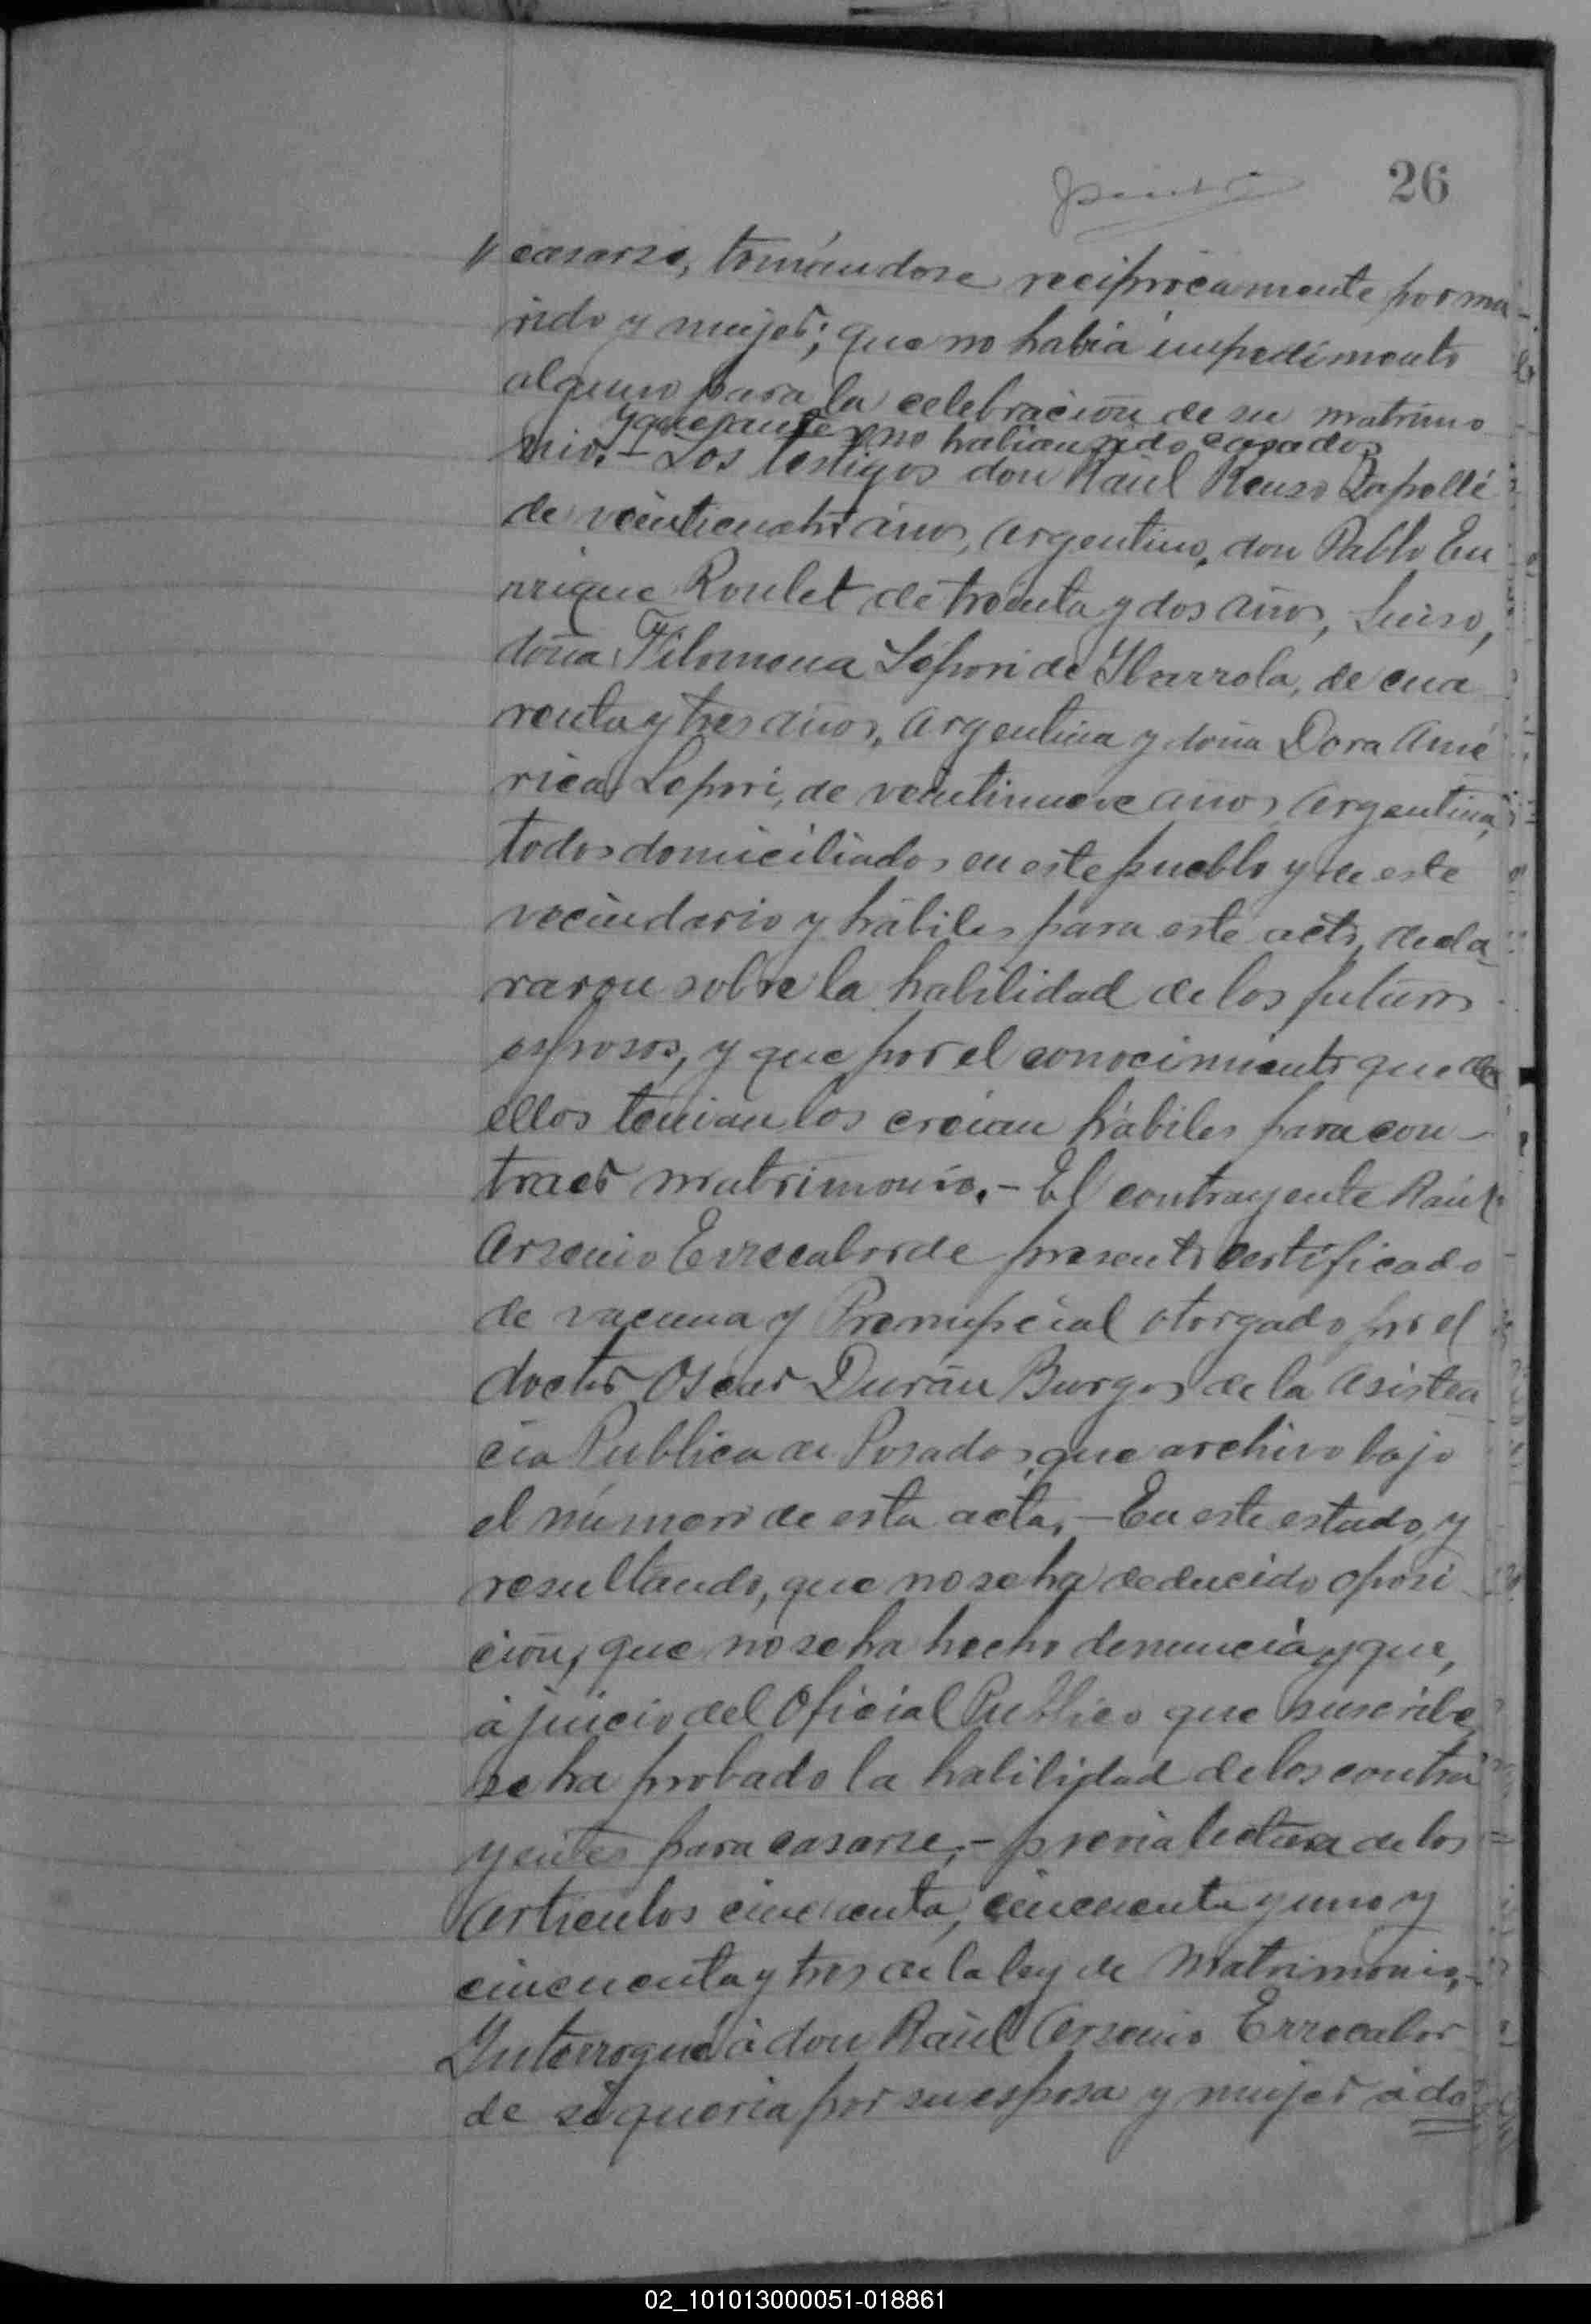 26
// casarse, tomándose reciprocamente por ma
rido y mujer; que no había impedimento
alguno para la celebración de su matrimo
y que no habian sido casados
nio. - Los testigos don Raúl Renso
de veinticuatro años, argentino, don Pablo En
rrique Roulet de treinta y dos años, Suizo,
doña Filomena Lépori de Ybarrola, de cua
renta y tres años, argentina y doña Dora Amé
rica Lepori, de veintinueve años argentina,
todos domiciliados en este pueblo y de este
vecindario y hábiles para este acto, decla
raron sobre la habilidad de los futuros
esposos, y que por el conocimiento que de
ellos tenian los creian hábiles para con-
traer matrimonio. - El contrayente Raúl
Arsenio Errecalorde presento certificado
de vacuna y Prenupcial otorgado por el
doctor Oscar Durán Burgos de la Asisten
cia Publica de Posadas, que archivo bajo
el número de esta acta. - En este estado, y
resultando, que no se ha deducido oposi
ción, que no se ha hecho denuncia y que,
á juicio del Oficial Publico que suscribe
se ha probado la habilidad de los contra
yentes para casarse, - previa lectura de los
artículos cincuenta, cincuenta y uno y
cincuenta y tres de la ley de Matrimonio, -
Interrogué á don Raúl Arsenio Errecalor
de si queria por su esposa y mujer á do
02_101013000051-018861